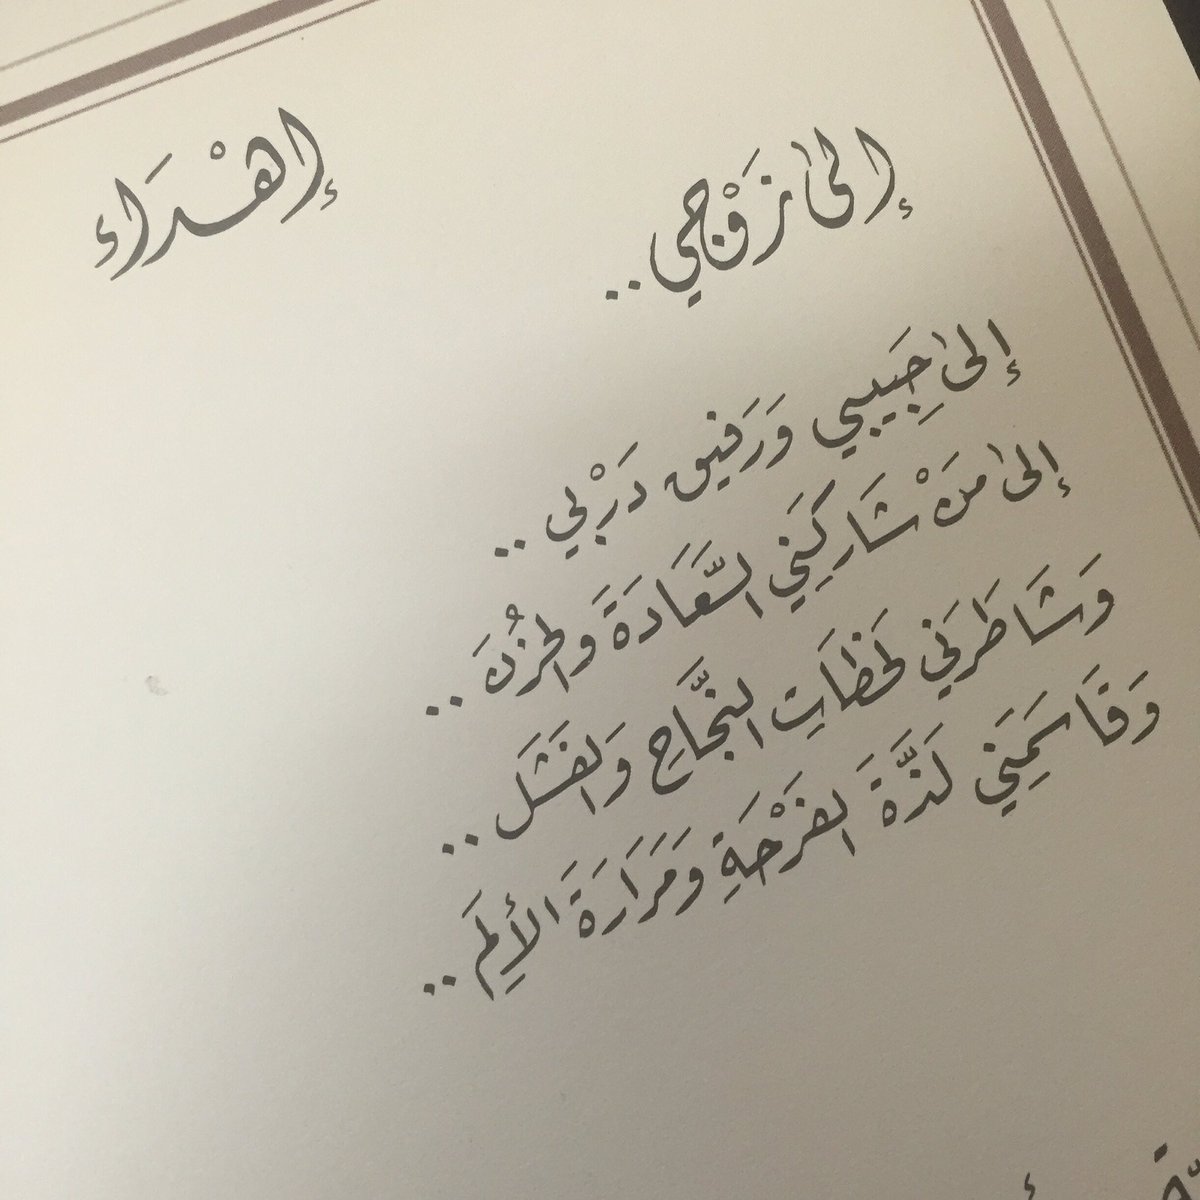 إهْدَاء
إلىٰ زَوْجي ..
إلىٰ حَبِيبي وَرَفيق دَرْبي ..
إلىٰ مَنْ شَارَكَنِي السَّعَادَةَ والحُزْنَ ..
وَشَاطَرَني لَحَظَاتِ النَّجَاحِ وَالفَشَل ..
وَقَاسَمَنِي لَذَّةَ الفَرْحَةِ وَمَرَارَةَ الأَلَم ..